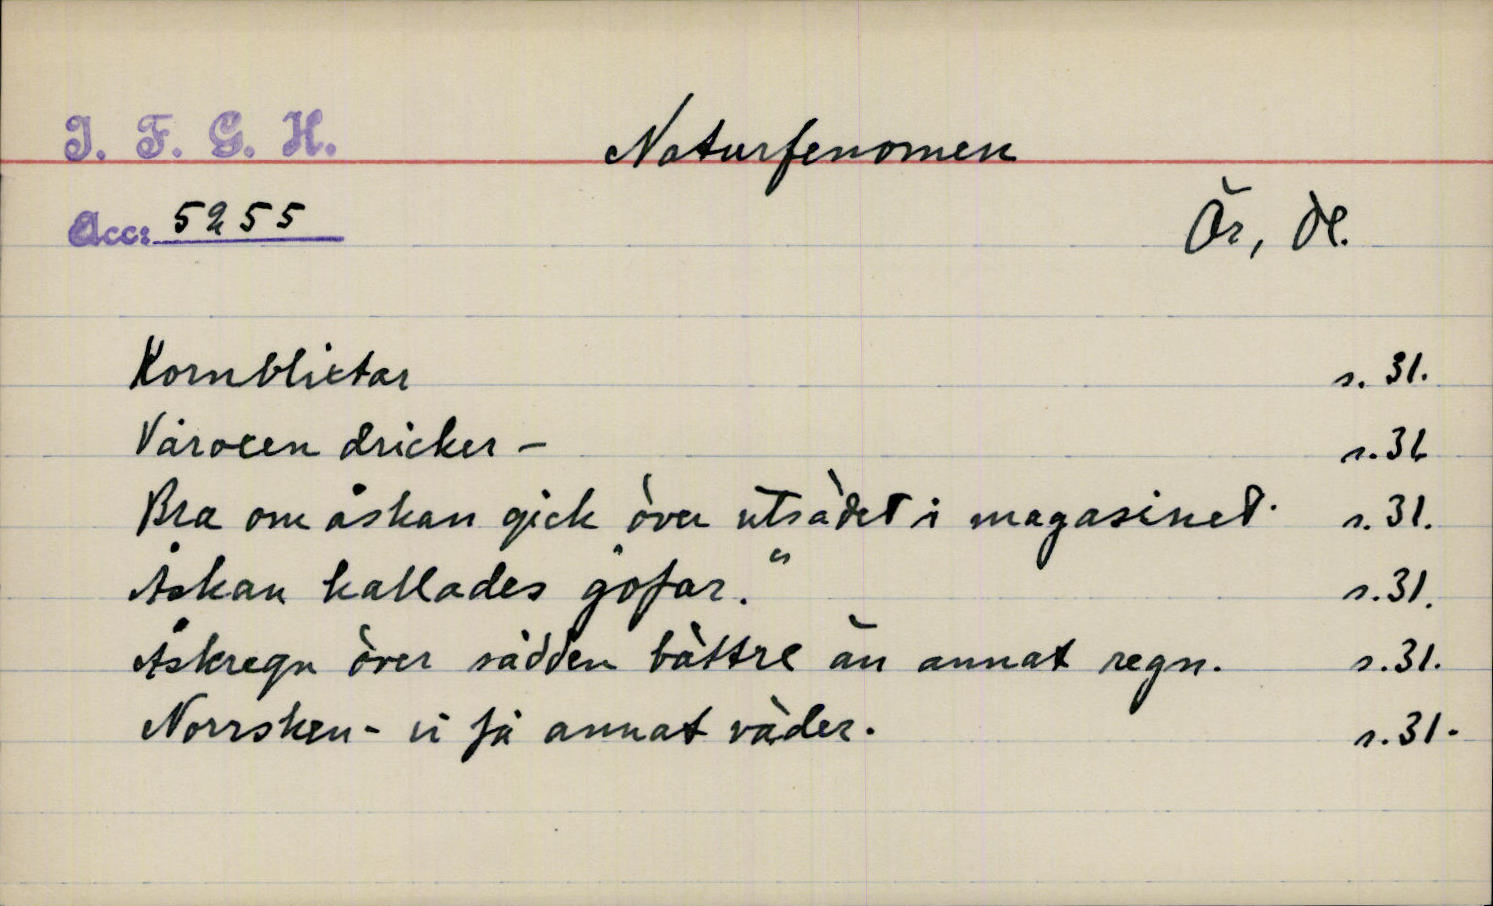 I. F. G. H.
Naturfenomen
Acc: 5255
Ör, Dl.
Kornblixtar s. 31.
Våroxen dricker - s. 31
Bra om åskan gick över utsädet i magasinet. s. 31.
Åskan kallades "gofar." s. 31.
Åskregn över sådden bättre än annat regn. s. 31.
Norrsken - vi få annat väder. s. 31.